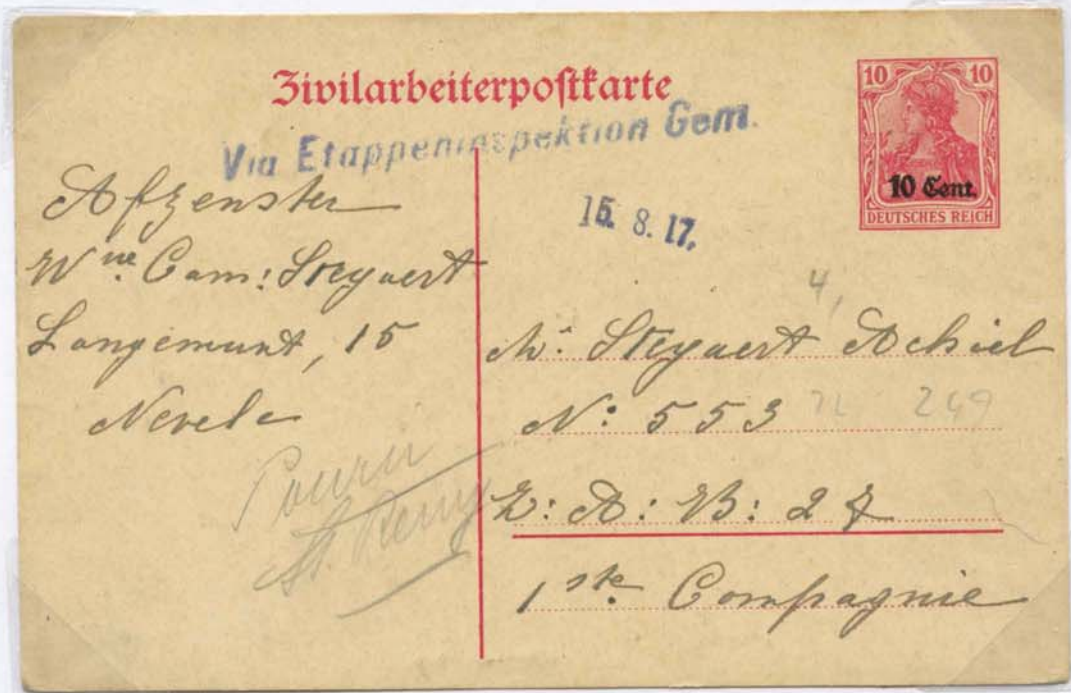 Zivilarbeiterpostkarte
Via Etappeninspektion Gent.
15. 8. 17.
10 10
10 Cent.
DEUTSCHES REICH
Afzenster
Wwe Cam: Steyaert
Langemunt, 15
Nevele
Pourru
St. Remy
4,
Mr: Steyaert Achiel
No: 553 249
Z: A: B: 27
1ste Compagnie